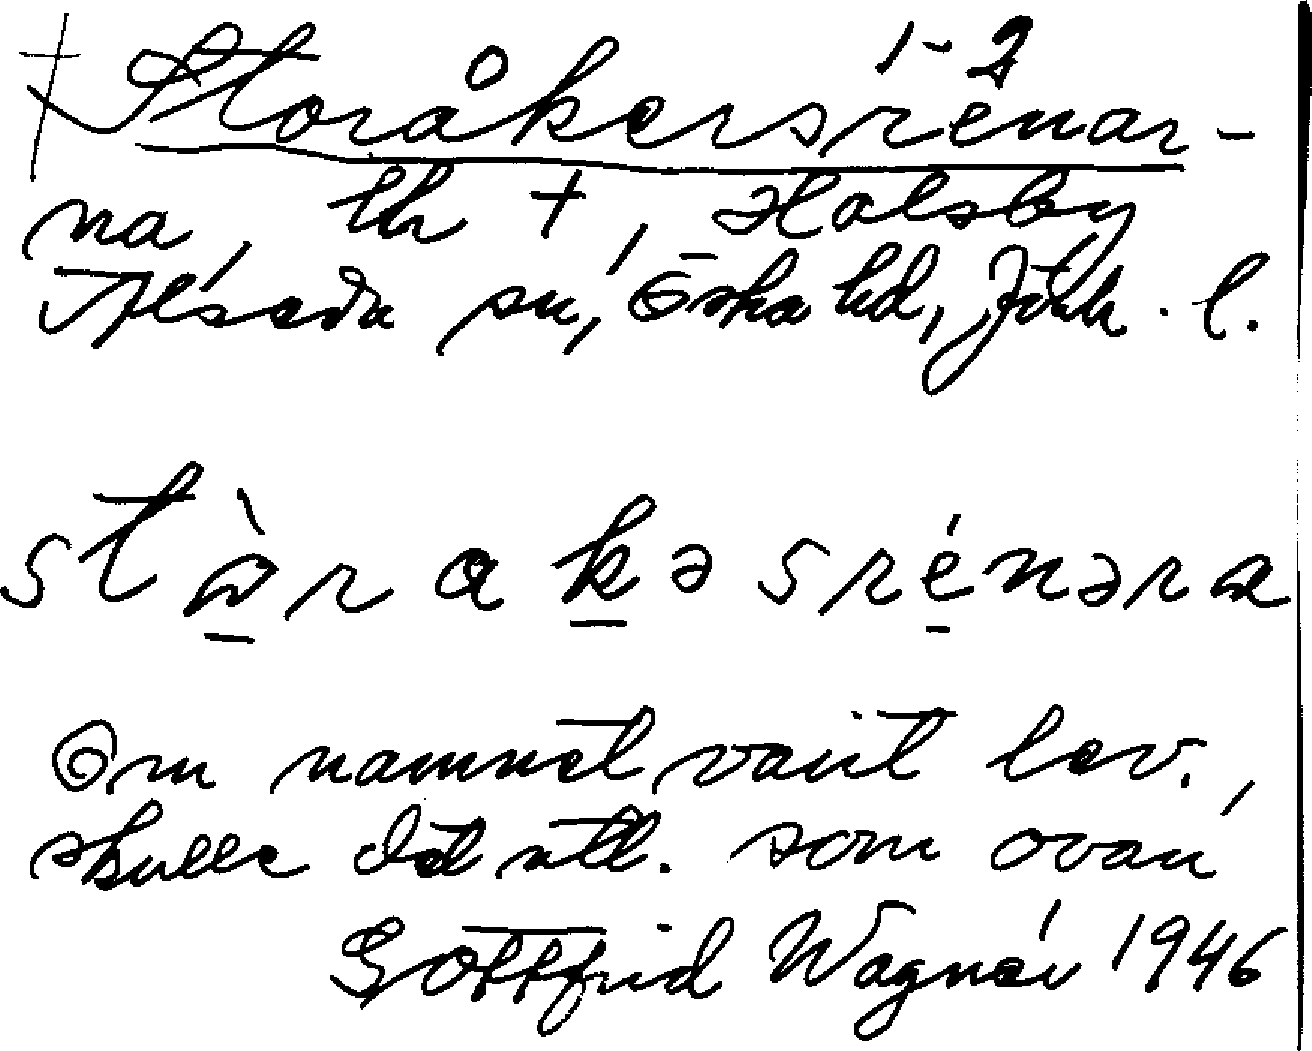 † Storåkersrenar- 1-2
na, lh †, Holsby
Alseda sn, Östra hd, Jönk. l.
stὼrakəsrénəra
Om namnet varit lev.,
skulle det utt. som ovan
Gottfrid Wagnér 1946